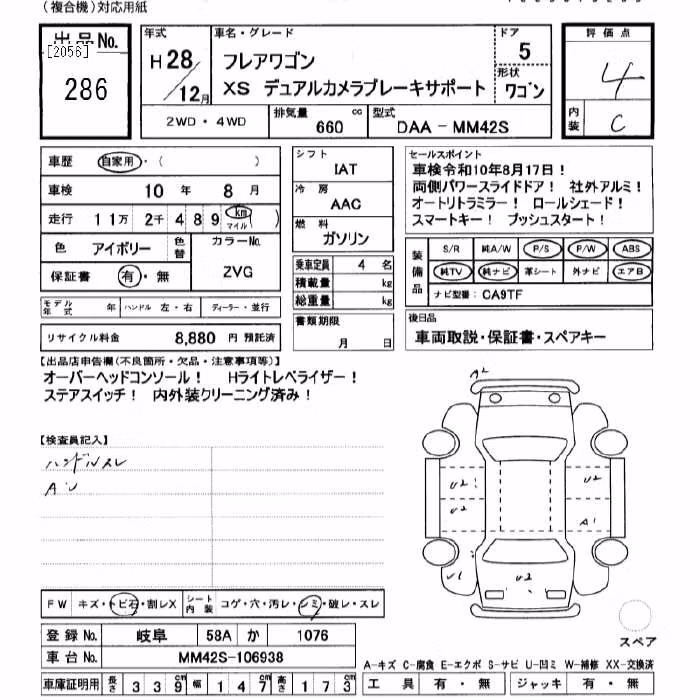 (複合機)対応用紙
出品No.
[2056]
286
年式
H28/12月
車名・グレード
フレアワゴン
XS デュアルカメラブレーキサポート
ドア
5
形状
ワゴン
評価点
4
内装
C
2WD・4WD
排気量 660 cc
型式 DAA-MM42S
車歴 自家用・( )
車検 10年 8月
走行 11万 2千 489 km マイル )
色 アイボリー 色替
カラーNo.
ZVG
保証書 有・無
シフト
IAT
冷房
AAC
燃料
ガソリン
乗車定員 4名
積載量 kg
総重量 kg
書類期限
月 日
セールスポイント
車検令和10年8月17日!
両側パワースライドドア! 社外アルミ!
オートリトラミラー! ロールシェード!
スマートキー! プッシュスタート!
装備品
S/R 純A/W P/S P/W ABS
純TV 純ナビ 革シート 外ナビ エアB
ナビ型番: CA9TF
モデル年式 年 ハンドル 左・右 ディーラー・並行
リサイクル料金 8,880 円 預託済
後日品
車両取説・保証書・スペアキー
【出品店申告欄(不良箇所・欠品・注意事項等)】
オーバーヘッドコンソール! Hライトレベライザー!
ステアスイッチ! 内外装クリーニング済み!
【検査員記入】
ハンドルスレ
AU
A2
U2
U2
U2
A1
U1
U2
スペア
FW キズ・トビ石・割レX
シート内装 コゲ・穴・汚レ・シミ・破レ・スレ
登録No. 岐阜 58A か 1076
車台No. MM42S-106938
車庫証明用 長さ 339 幅 147 高さ 173
A-キズ C-腐食 E-エクボ S-サビ U-凹ミ W-補修 XX-交換済
工具 有・無 ジャッキ 有・無